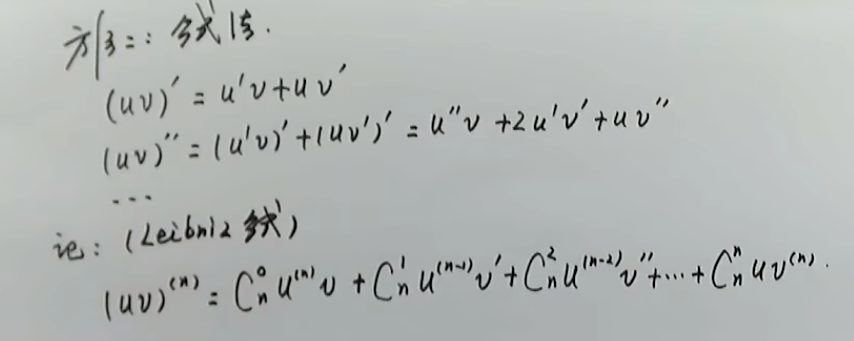 方法二: 公式法.
(uv)' = u'v + uv'
(uv)'' = (u'v)' + (uv')' = u''v + 2u'v' + uv''
...
记: (Leibniz 公式)
(uv)⁽ⁿ⁾ = Cₙ⁰ u⁽ⁿ⁾ v + Cₙ¹ u⁽ⁿ⁻¹⁾ v' + Cₙ² u⁽ⁿ⁻²⁾ v'' + ... + Cₙⁿ u v⁽ⁿ⁾.